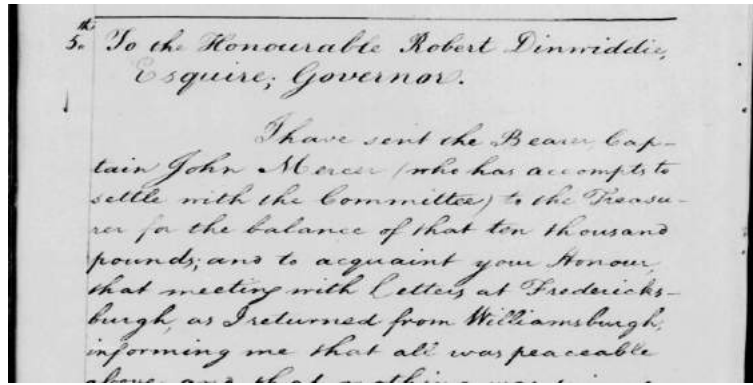 5th. To the Honourable Robert Dinwiddie,
Esquire; Governor.
I have sent the Bearer, Cap-
tain John Mercer (who has accompts to
settle with the Committee) to the Treasu-
rer for the balance of that ten thousand
pounds; and to acquaint your Honour,
that meeting with Letters at Fredericks-
burgh, as I returned from Williamsburgh,
informing me that all was peaceable
above, and that nothing was